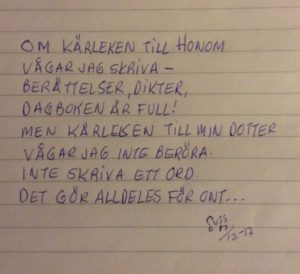 OM KÄRLEKEN TILL HONOM
VÅGAR JAG SKRIVA –
BERÄTTELSER, DIKTER,
DAGBOKEN ÄR FULL!
MEN KÄRLEKEN TILL MIN DOTTER
VÅGAR JAG INTE BERÖRA.
INTE SKRIVA ETT ORD.
DET GÖR ALLDELES FÖR ONT...
/12-17